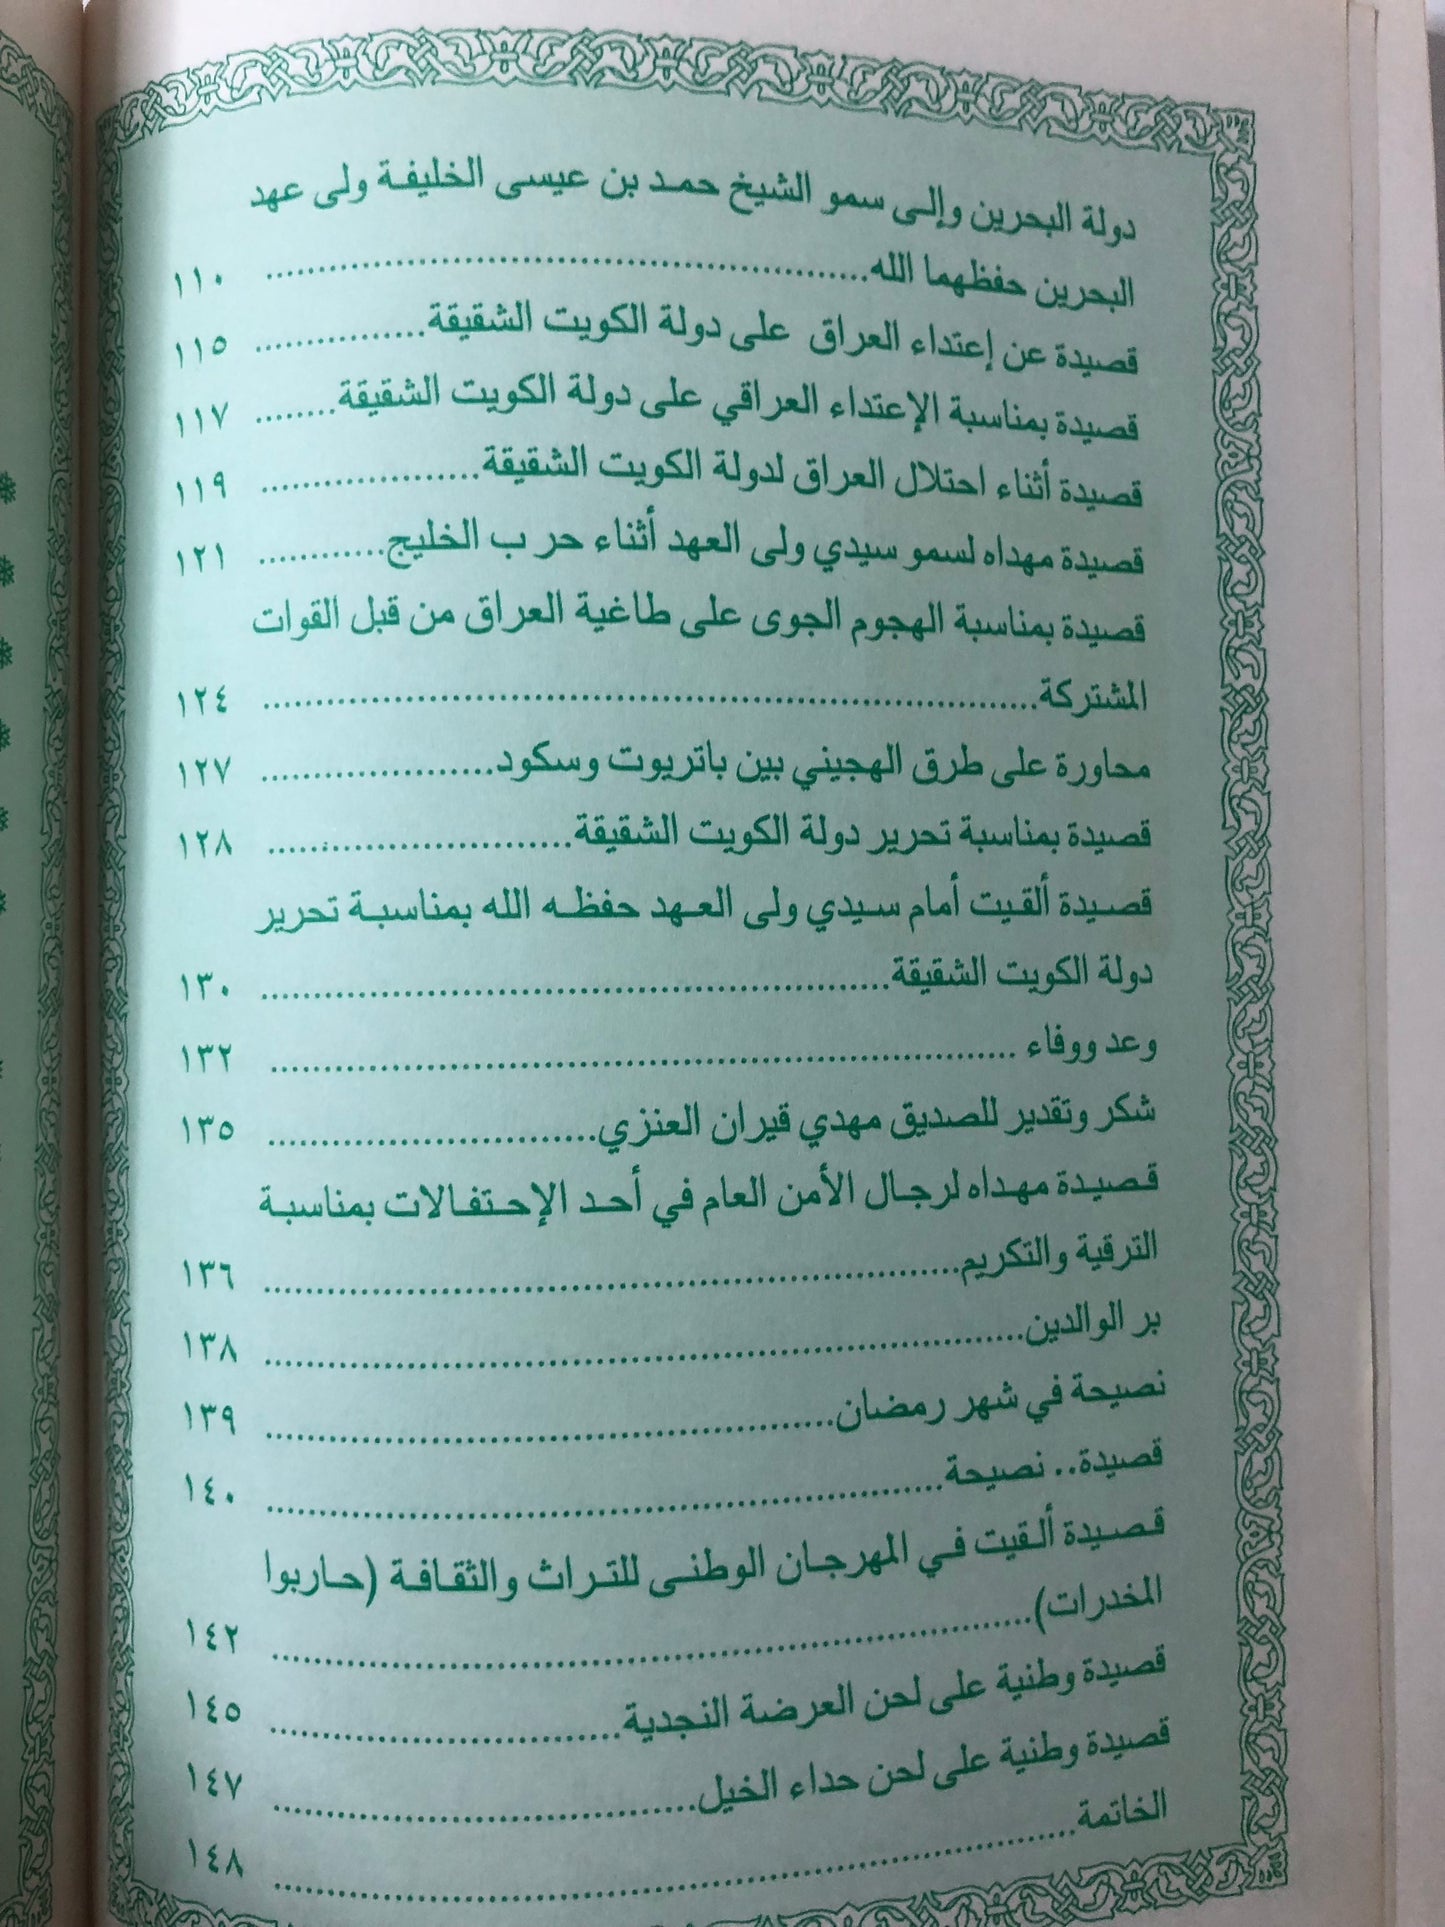 دولة البحرين وإلى سمو الشيخ حمد بن عيسى الخليفة ولى عهد
البحرين حفظهما الله............................................................ ١١٠
قصيدة عن إعتداء العراق على دولة الكويت الشقيقة................ ١١٥
قصيدة بمناسبة الإعتداء العراقي على دولة الكويت الشقيقة........ ١١٧
قصيدة أثناء احتلال العراق لدولة الكويت الشقيقة..................... ١١٩
قصيدة مهداه لسمو سيدي ولى العهد أثناء حر ب الخليج............ ١٢١
قصيدة بمناسبة الهجوم الجوى على طاغية العراق من قبل القوات
المشتركة............................................................................ ١٢٤
محاورة على طرق الهجيني بين باتريوت وسكود...................... ١٢٧
قصيدة بمناسبة تحرير دولة الكويت الشقيقة.............................. ١٢٨
قصيدة ألقيت أمام سيدي ولى العهد حفظه الله بمناسبة تحرير
دولة الكويت الشقيقة.............................................................. ١٣٠
وعد ووفاء ......................................................................... ١٣٢
شكر وتقدير للصديق مهدي قيران العنزي................................ ١٣٥
قصيدة مهداه لرجال الأمن العام في أحد الإحتفالات بمناسبة
الترقية والتكريم.................................................................... ١٣٦
بر الوالدين........................................................................... ١٣٨
نصيحة في شهر رمضان........................................................ ١٣٩
قصيدة.. نصيحة................................................................... ١٤٠
قصيدة ألقيت في المهرجان الوطنى للتراث والثقافة (حاربوا
المخدرات)........................................................................... ١٤٢
قصيدة وطنية على لحن العرضة النجدية.................................. ١٤٥
قصيدة وطنية على لحن حداء الخيل......................................... ١٤٧
الخاتمة............................................................................... ١٤٨